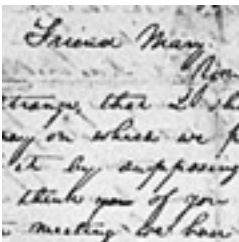 Friend Mary.
strange, that I
day on which we
it by supposing
think you of you
meeting we have